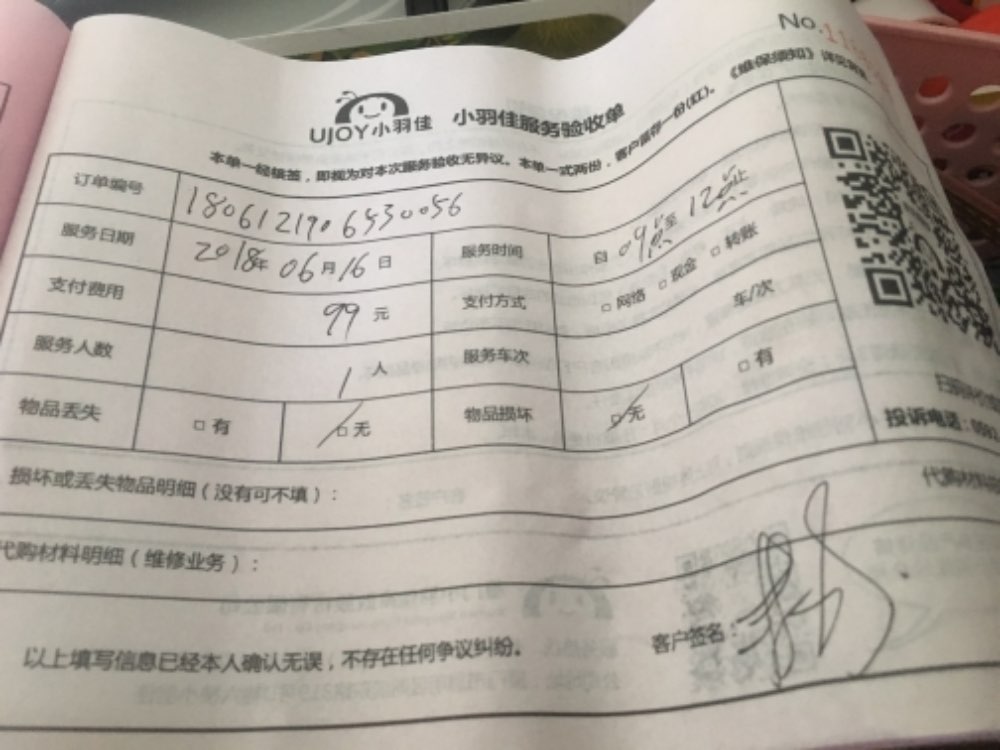 No.118
《维保须知》详见背面
UJOY小羽佳 小羽佳服务验收单
本单一经核签，即视为对本次服务验收无异议。本单一式两份，客户留存一份(红)。
订单编号 1806121906530056
服务日期 2018年 06月16日 服务时间 自09点至12点止
支付费用 99元 支付方式 □网络 □现金 □转账
服务人数 1人 服务车次 车/次
物品丢失 □有 □无 物品损坏 □无 □有
投诉电话：
损坏或丢失物品明细（没有可不填）：
代购材料
代购材料明细（维修业务）：
以上填写信息已经本人确认无误，不存在任何争议纠纷。 客户签名：